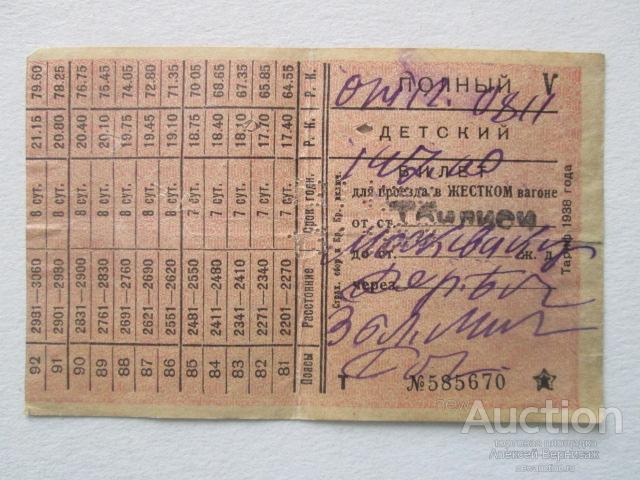 ПОЛНЫЙ V
ДЕТСКИЙ
БИЛЕТ
для проезда в ЖЕСТКОМ вагоне
от ст. Тбилиси
до ст. Москва ж. д.
через
Т №585670
Тариф 1938 года
Пояса Расстояние Срок годн. Р. К. Р. К.
81 2201—2270 7 сут. 17.40 64.55
82 2271—2340 7 сут. 17.70 65.85
83 2341—2410 7 сут. 18.10
84 2411—2480 7 сут. 18.40 68.65
85 2481—2550 7 сут. 18.75 70.05
86 2551—2620 8 сут. 19.10 71.35
87 2621—2690 8 сут. 19.45 72.80
88 2691—2760 8 сут. 19.75 74.05
89 2761—2830 8 сут. 20.10 75.45
90 2831—2900 8 сут. 20.40 76.75
91 2901—2980 8 сут. 20.80 78.25
92 2981—3060 8 сут. 21.15 79.60
newAuction
торговая площадка
Алексей-Вернисаж
newauction.ru